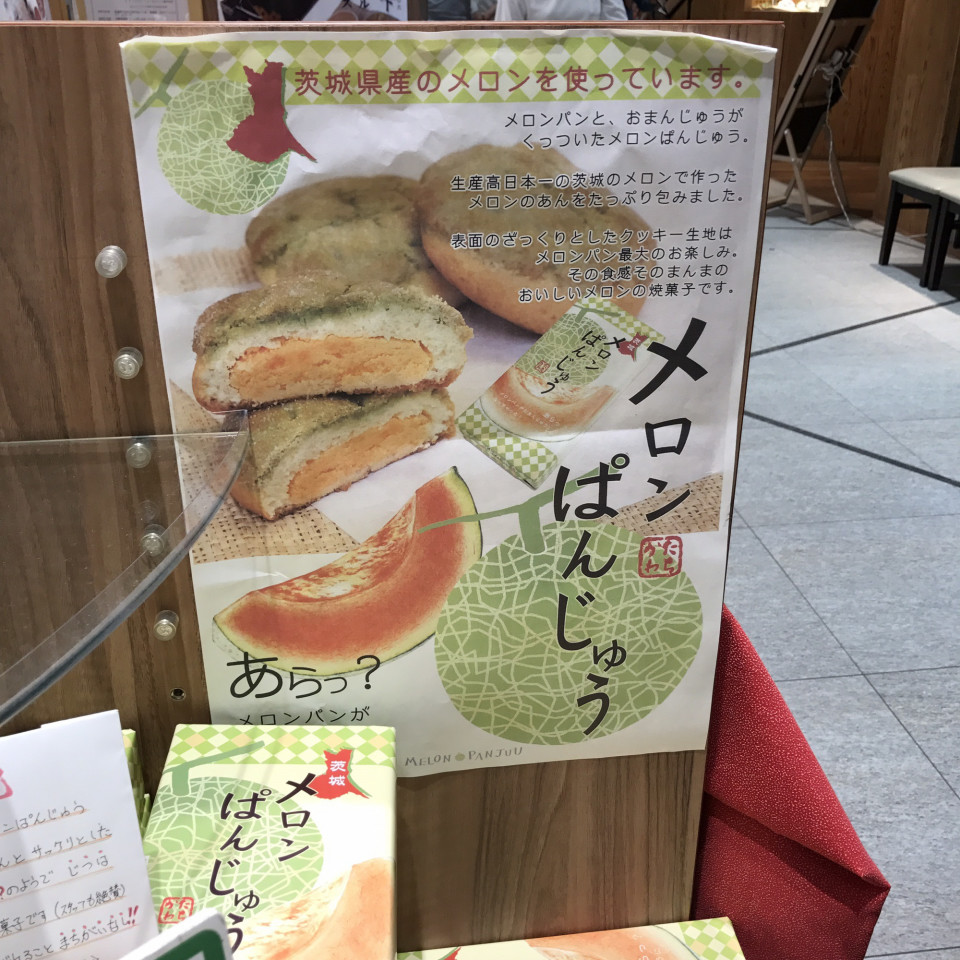 茨城県産のメロンを使っています。
メロンパンと、おまんじゅうが
くっついたメロンぱんじゅう。
生産高日本一の茨城のメロンで作った
メロンのあんをたっぷり包みました。
表面のざっくりとしたクッキー生地は
メロンパン最大のお楽しみ。
その食感そのまんまの
おいしいメロンの焼菓子です。
茨城
メロン
ぱんじゅう
メロン
ぱんじゅう
たち
がわ
あらっ?
メロンパンが
MELON PANJUU
茨城
メロン
ぱんじゅう
たち
がわ
ンぱんじゅう
んと サックリとした
のようで じつは
菓子です(スタッフも絶賛)
ること まちがいなし!!